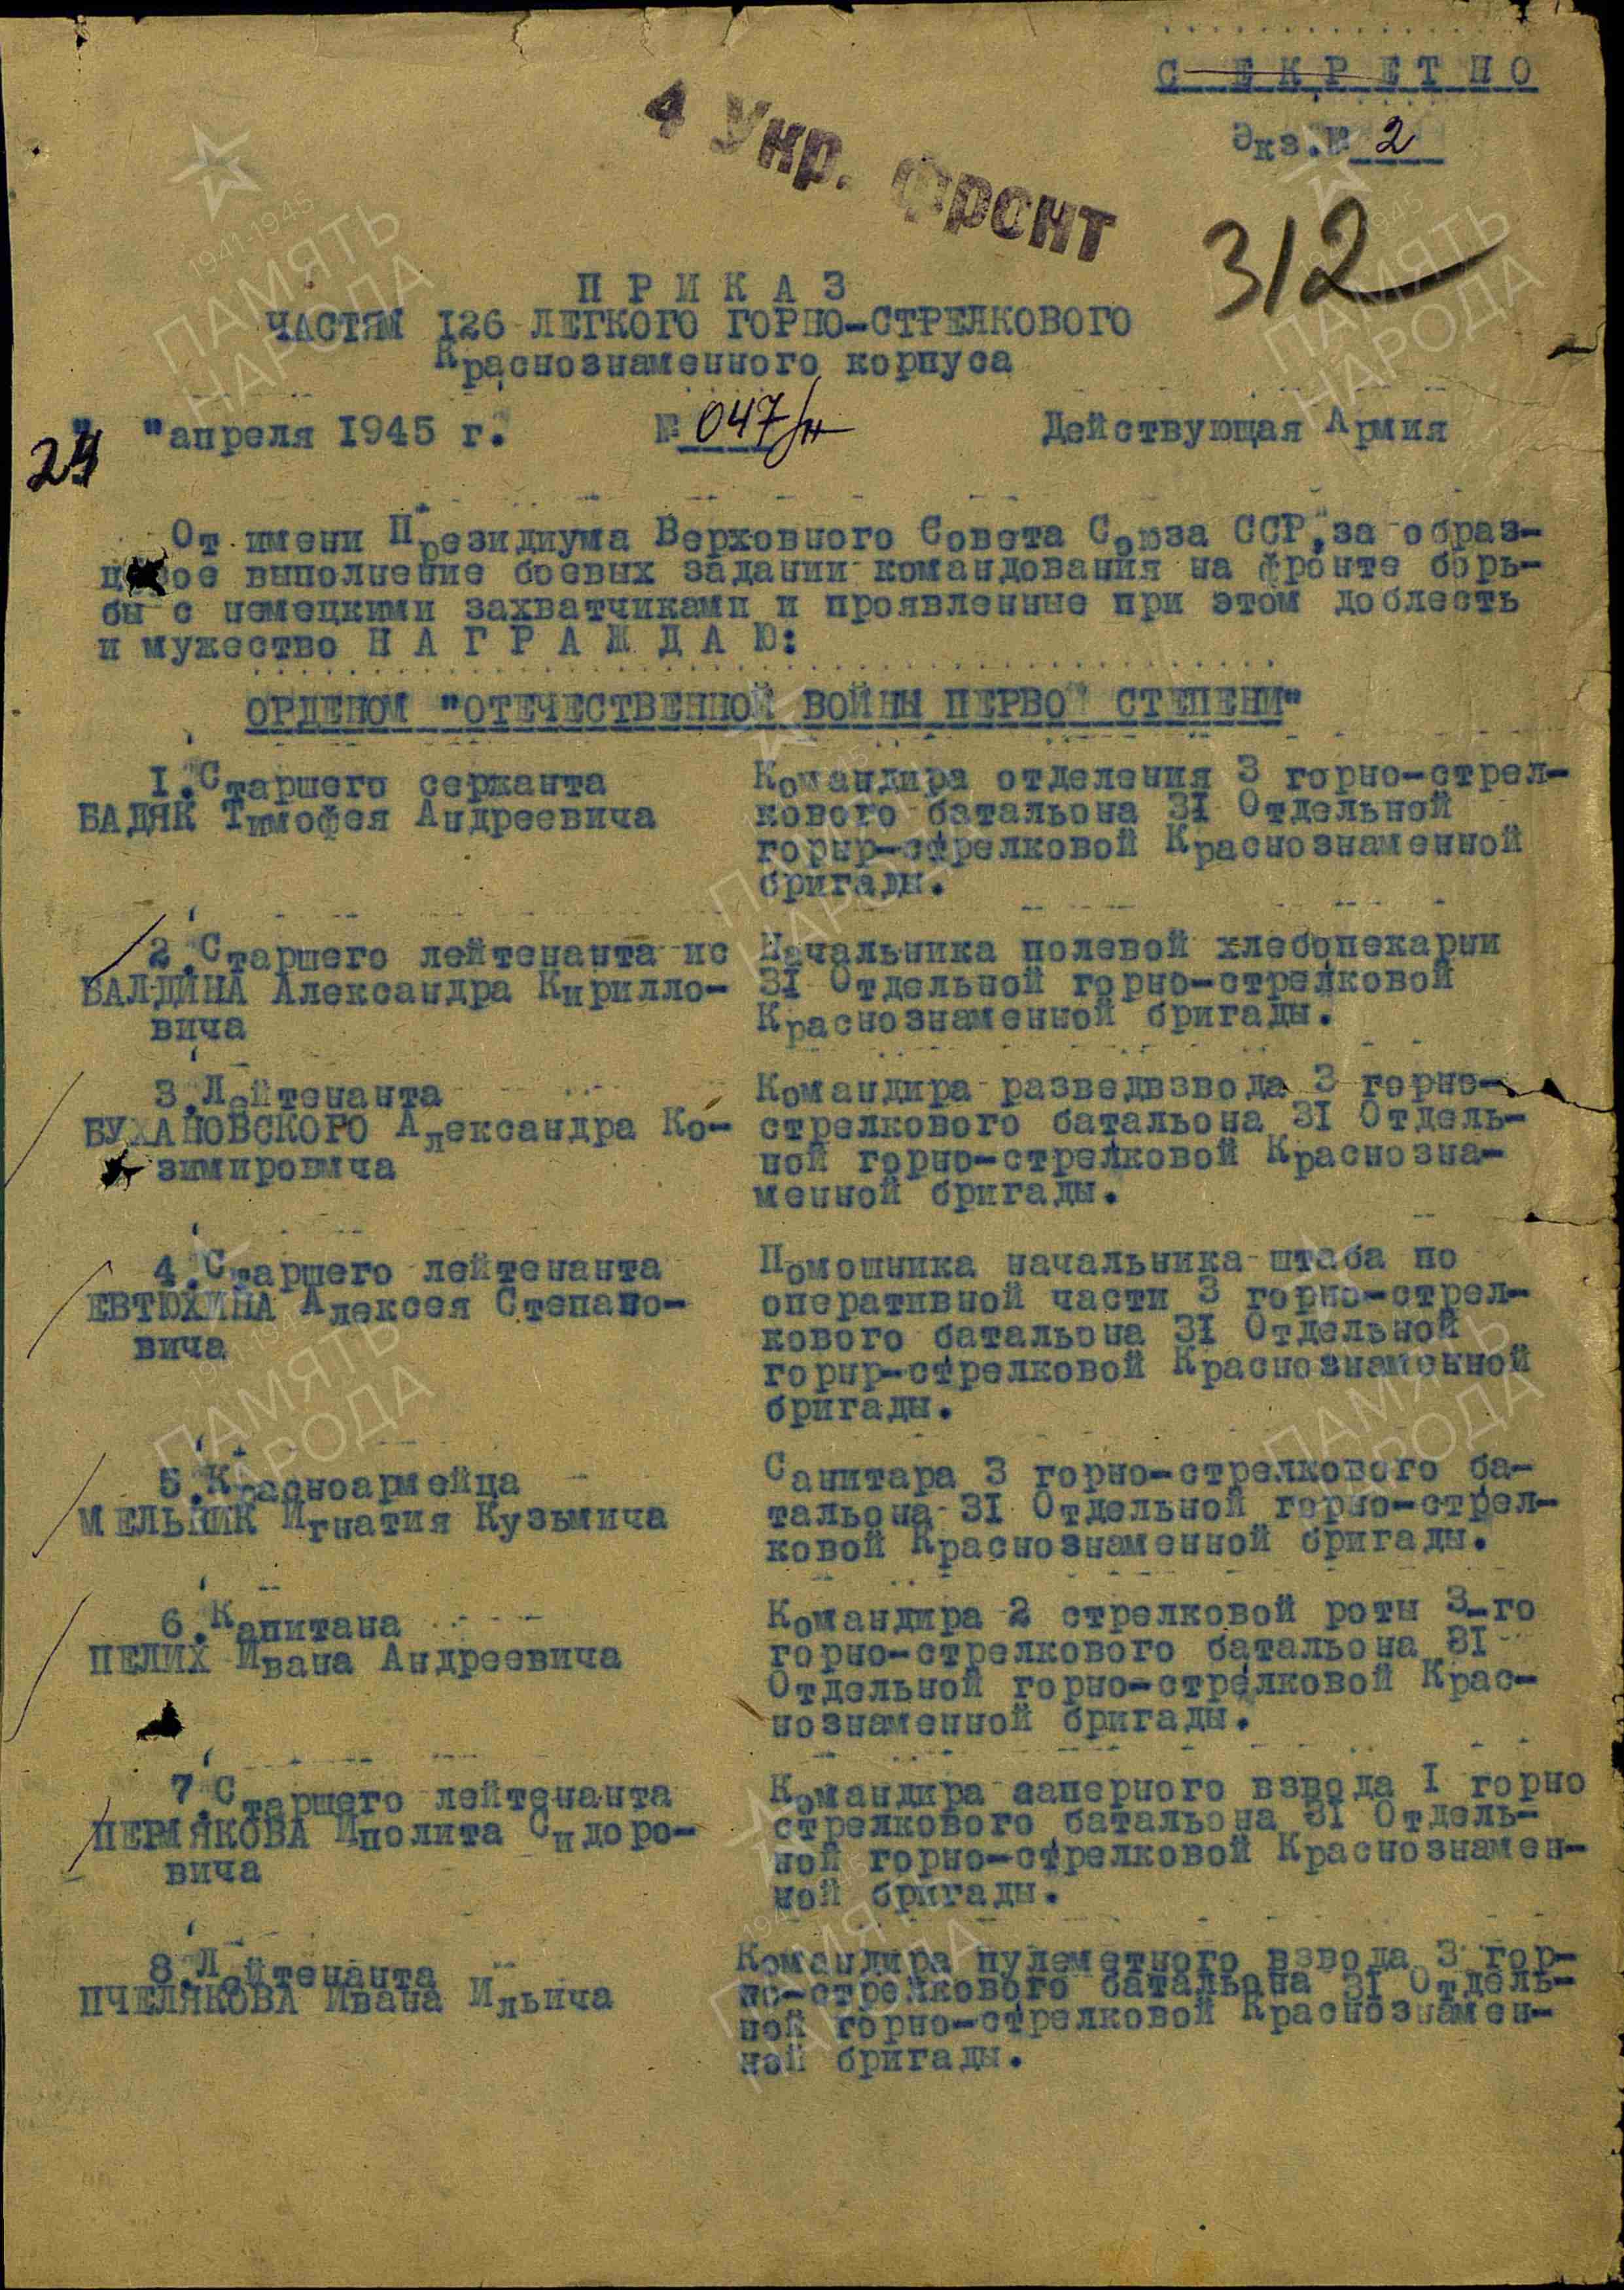 СЕКРЕТНО
Экз.№ 2
4 Укр. фронт
312
ПРИКАЗ
ЧАСТЯМ 126 ЛЕГКОГО ГОРНО-СТРЕЛКОВОГО
Краснознаменного корпуса
" "апреля 1945 г. № 047/н Действующая Армия
24
От имени Президиума Верховного Совета Союза ССР, за образ-
цовое выполнение боевых заданий командования на фронте борь-
бы с немецкими захватчиками и проявленные при этом доблесть
и мужество НАГРАЖДАЮ:
ОРДЕНОМ "ОТЕЧЕСТВЕННОЙ ВОЙНЫ ПЕРВОЙ СТЕПЕНИ"
1.Старшего сержанта
БАДЯК Тимофея Андреевича
Командира отделения 3 горно-стрел-
кового батальона 31 Отдельной
горнр-стрелковой Краснознаменной
бригады.
2.Старшего лейтенанта ис
БАЛДИНА Александра Кирилло-
вича
Начальника полевой хлебопекарни
31 Отдельной горно-стрелковой
Краснознаменной бригады.
3.Лейтенанта
БУХАНОВСКОГО Александра Ко-
зимировича
Командира разведвзвода 3 горно-
стрелкового батальона 31 Отдель-
ной горно-стрелковой Краснозна-
менной бригады.
4.Старшего лейтенанта
ЕВТЮХИНА Алексея Степано-
вича
Помошника начальника штаба по
оперативной части 3 горно-стрел-
кового батальона 31 Отдельной
горнр-стрелковой Краснознаменной
бригады.
5.Красноармейца
МЕЛЬНИК Игнатия Кузьмича
Санитара 3 горно-стрелкового ба-
тальона 31 Отдельной горно-стрел-
ковой Краснознаменной бригады.
6.Капитана
ПЕЛИХ Ивана Андреевича
Командира 2 стрелковой роты 3-го
горно-стрелкового батальона 31
Отдельной горно-стрелковой Крас-
нознаменной бригады.
7.Старшего лейтенанта
ПЕРМЯКОВА Иполита Сидоро-
вича
Командира саперного взвода 1 горно
стрелкового батальона 31 Отдель-
ной горно-стрелковой Краснознамен-
ной бригады.
8.Лейтенанта
ПЧЕЛЯКОВА Ивана Ильича
Командира пулеметного взвода 3 гор-
но-стрелкового батальона 31 Отдель-
ной горно-стрелковой Краснознамен-
ной бригады.
1941-1945
ПАМЯТЬ
НАРОДА